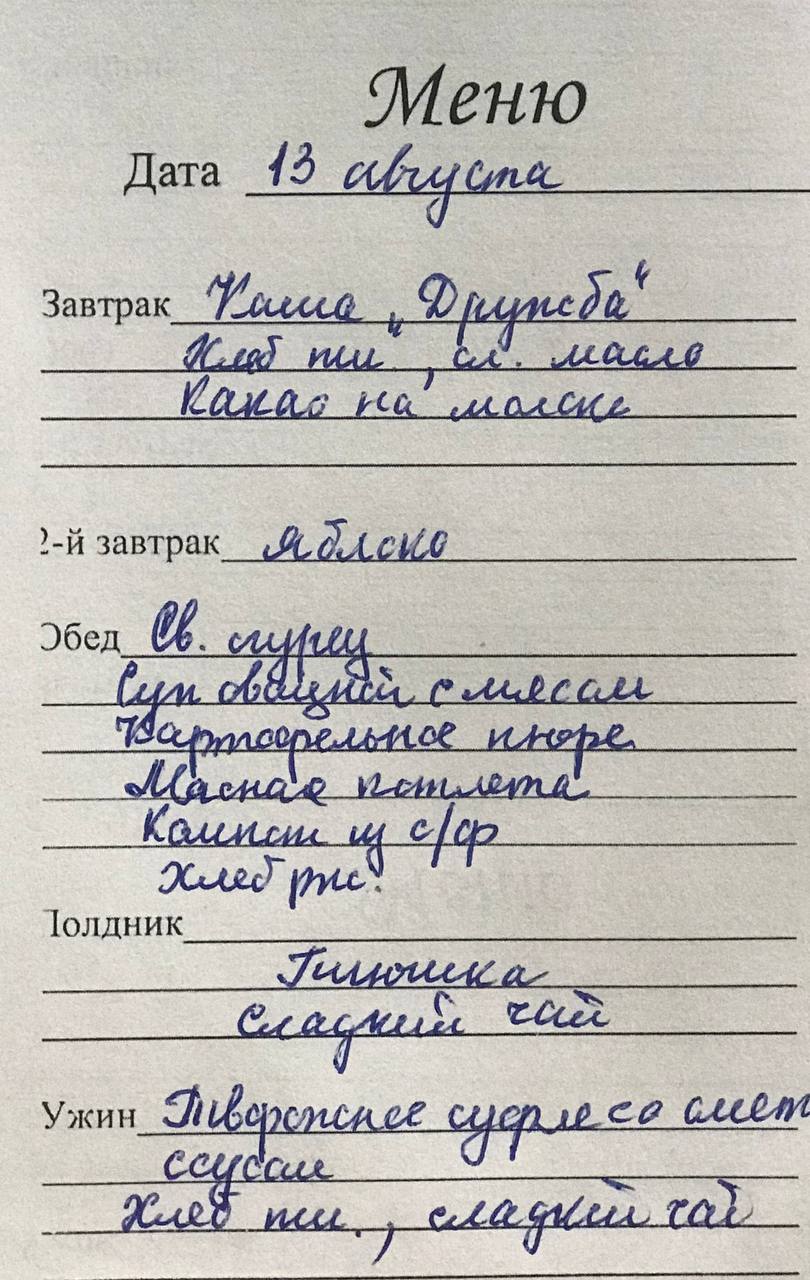 Меню
Дата 13 августа
Завтрак Каша "Дружба"
Хлеб пш., сл. масло
Какао на молоке
2-й завтрак яблоко
Обед Св. огурец
Суп овощной с мясом
Картофельное пюре
Мясная котлета
Компот из с/ф
Хлеб рж.
Полдник
Плюшка
Сладкий чай
Ужин Творожное суфле со смет
соусом
Хлеб пш., сладкий чай